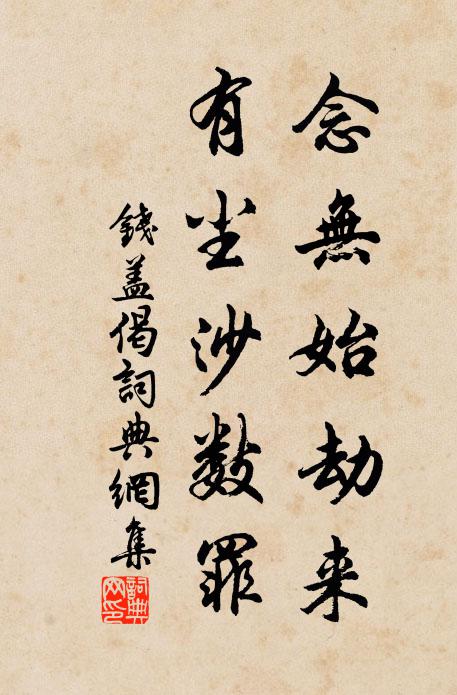 念無始劫来
有尘沙数罪
錢盖偈詞典網集
詞典網印